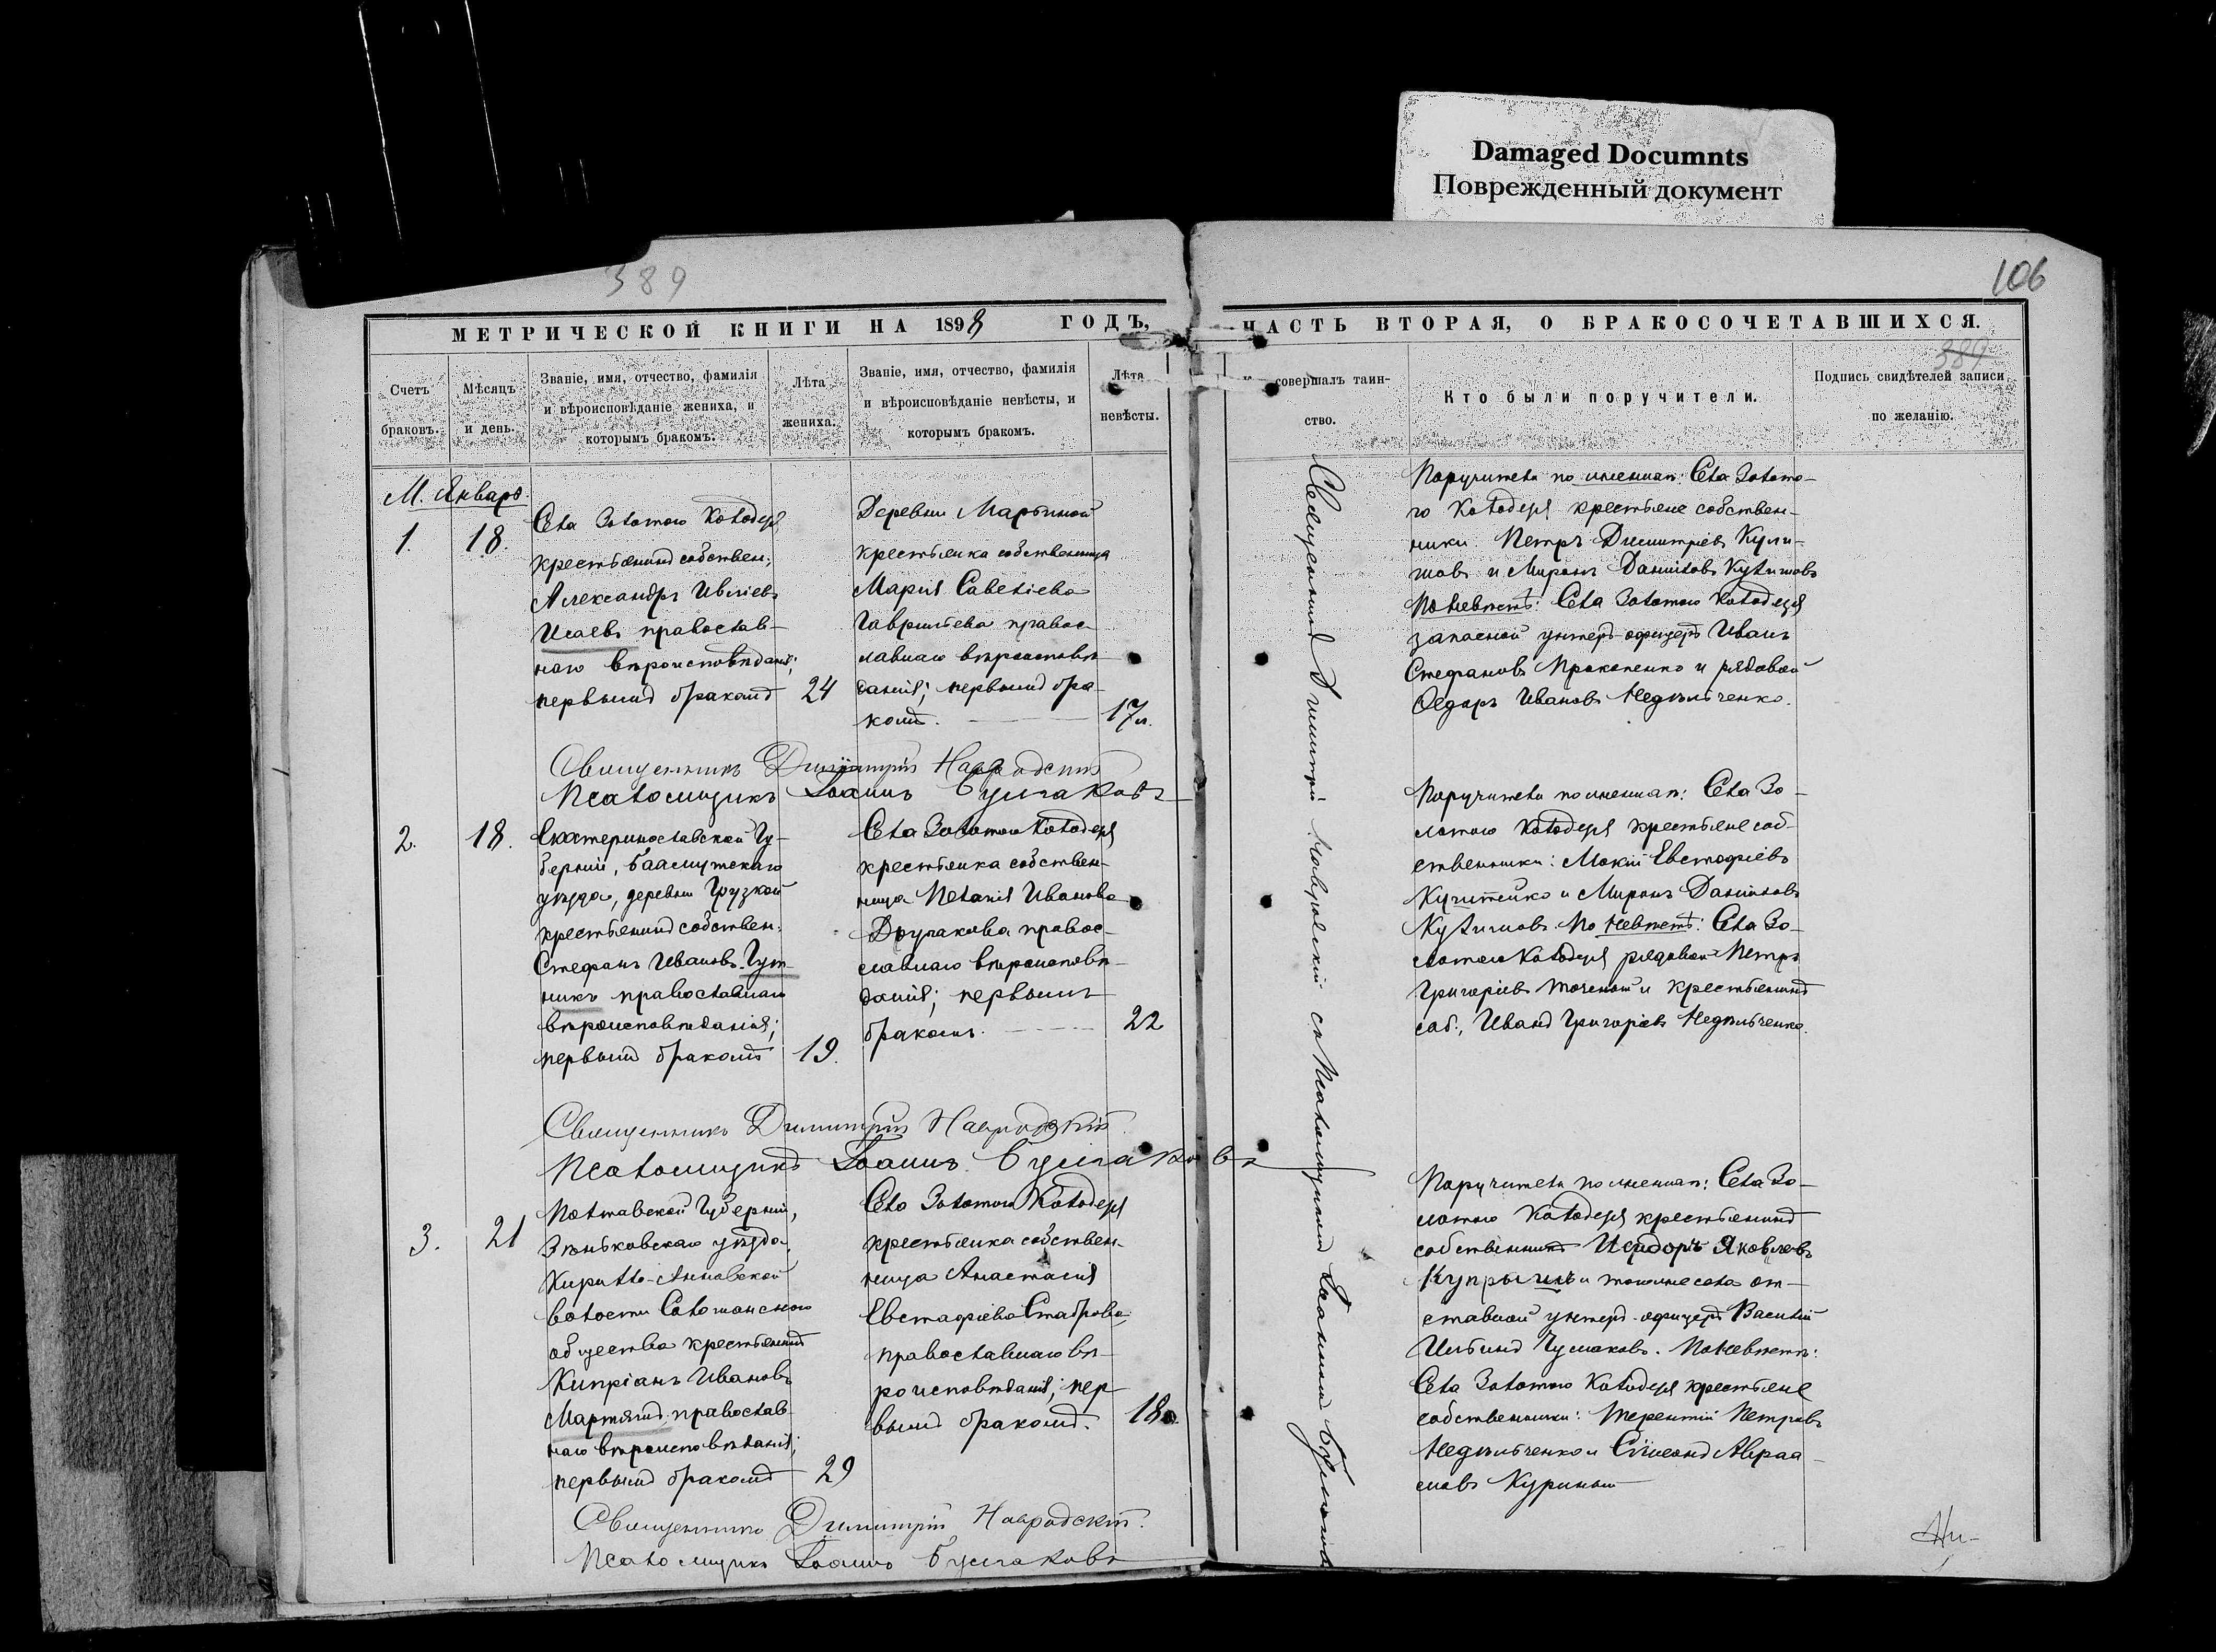 Damaged Documnts
Поврежденный документ
389
106
МЕТРИЧЕСКОЙ КНИГИ НА 1898 ГОДЪ,
ЧАСТЬ ВТОРАЯ, О БРАКОСОЧЕТАВШИХСЯ.
389
Счетъ браковъ.
Мѣсяцъ и день.
Званіе, имя, отчество, фамилія
и вѣроисповѣданіе жениха, и
которымъ бракомъ.
Лѣта жениха.
Званіе, имя, отчество, фамилія
и вѣроисповѣданіе невѣсты, и
которымъ бракомъ.
Лѣта невѣсты.
совершалъ таин-
ство.
Кто были поручители.
Подпись свидѣтелей записи
по желанію.
М. Январь.
1.
18.
Села Золотого Колодезя
крестьянинъ собствен.
Александръ Ивліевъ
Исаевъ православ-
наго вѣроисповѣданія;
первымъ бракомъ
24
Деревни Марьиной
крестьянка собственница
Марія Савеліева
Гаврильева правос-
лавнаго вѣроисповѣ-
данія; первымъ бра-
комъ.
17 л.
Поручители по женихѣ: Села Золото-
го Колодезя крестьяне собствен-
ники Петръ Димитріевъ
и Миронъ Даниловъ Кулишовъ
По невѣстѣ: Села Золотого Колодезя
запасной унтеръ-офицеръ Иванъ
Стефановъ Прокопенко и рядовой
Ѳедоръ Ивановъ Недѣльченко.
Священникъ Димитрій Навродскій
Псаломщикъ Іоаннъ Булгаковъ
2.
18.
Екатеринославской Гу-
берніи, Бахмутскаго
уѣзда, деревни Грузкой
крестьянинъ собствен.
Стефанъ Ивановъ Гут-
никъ православнаго
вѣроисповѣданія;
первымъ бракомъ
19.
Села Золотого Колодезя
крестьянка собствен-
ница Пелагія Иванова
правос-
лавнаго вѣроисповѣ-
данія; первымъ
бракомъ.
22
Поручители по женихѣ: Села Зо-
лотого Колодезя крестьяне соб-
ственники: Мокій Евстафіевъ
и Миронъ Даниловъ
Кулишовъ. По невѣстѣ: Села Зо-
лотого Колодезя рядовой Петръ
Григорьевъ и крестьянинъ
соб., Иванъ Григорьевъ Недѣльченко.
Священникъ Димитрій Навродскій
Псаломщикъ Іоаннъ Булгаковъ
3.
21
Полтавской Губерніи,
Зѣньковскаго уѣзда,
волости
общества крестьянинъ
Кипріанъ Ивановъ
православ-
наго вѣроисповѣданія;
первымъ бракомъ
29
Села Золотого Колодезя
крестьянка собствен-
ница Анастасія
Евстафіева
православнаго вѣ-
роисповѣданія; пер-
вымъ бракомъ.
18
Поручители по женихѣ: Села Зо-
лотого Колодезя крестьянинъ
собственникъ Исидоръ Яковлевъ
и того же села от-
ставной унтеръ-офицеръ Василій
Ильинъ Чумаковъ. По невѣстѣ:
Села Золотого Колодезя крестьяне
собственники: Терентій Петровъ
Недѣльченко и Симеонъ Авраа-
мовъ
Священникъ Димитрій Навродскій.
Псаломщикъ Іоаннъ Булгаковъ
Священникъ Димитрій Навродскій съ Псаломщикомъ Іоанномъ